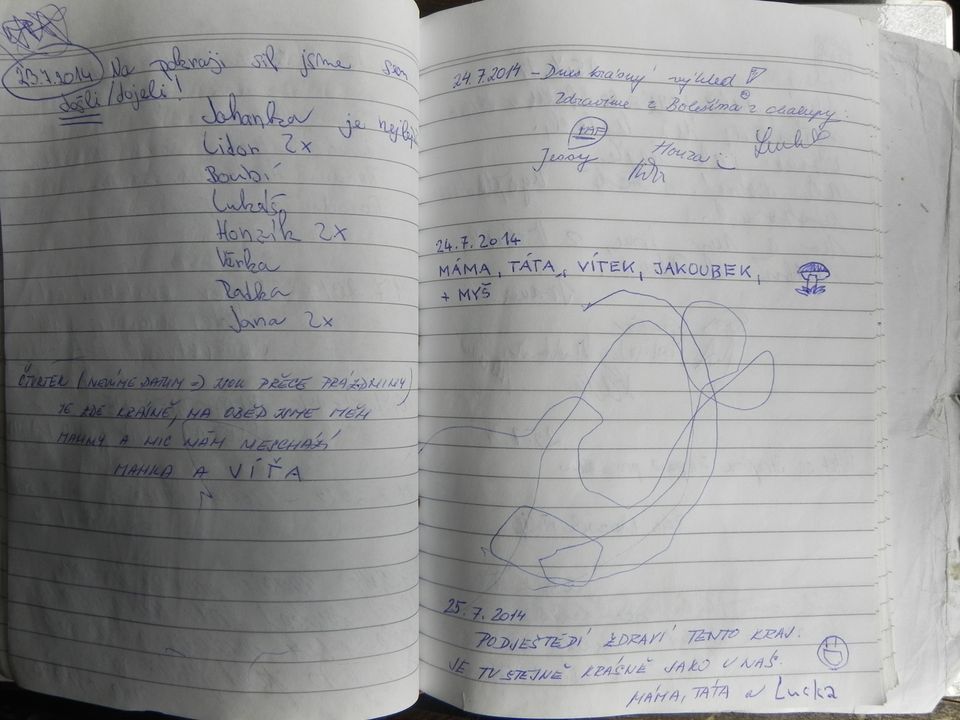 23.7.2014 Na pokraji sil jsme sem
došli/dojeli!
Johanka je nejlep
Lidor 2x
Boubí
Lukáš
Honzík 2x
Verka
Radka
Jana 2x
ČTVRTEK (NEVÍME DATUM => JSOU PŘECE PRÁZDNINY)
JE ZDE KRÁSNĚ, NA OBĚD JSME MĚLI
A NIC NÁM NESCHÁZÍ
A VÍŤA
24.7.2014 - Dnes krásný výhled
Zdravíme z z chalupy:
HAF
Jenny Honza
24.7.2014
MÁMA, TÁTA, VÍTEK, JAKOUBEK,
+ MYŠ
25.7.2014
PODJEŠTĚDÍ ZDRAVÍ TENTO KRAJ.
JE TU STEJNĚ KRÁSNĚ JAKO U NÁS.
MÁMA, TÁTA a Lucka